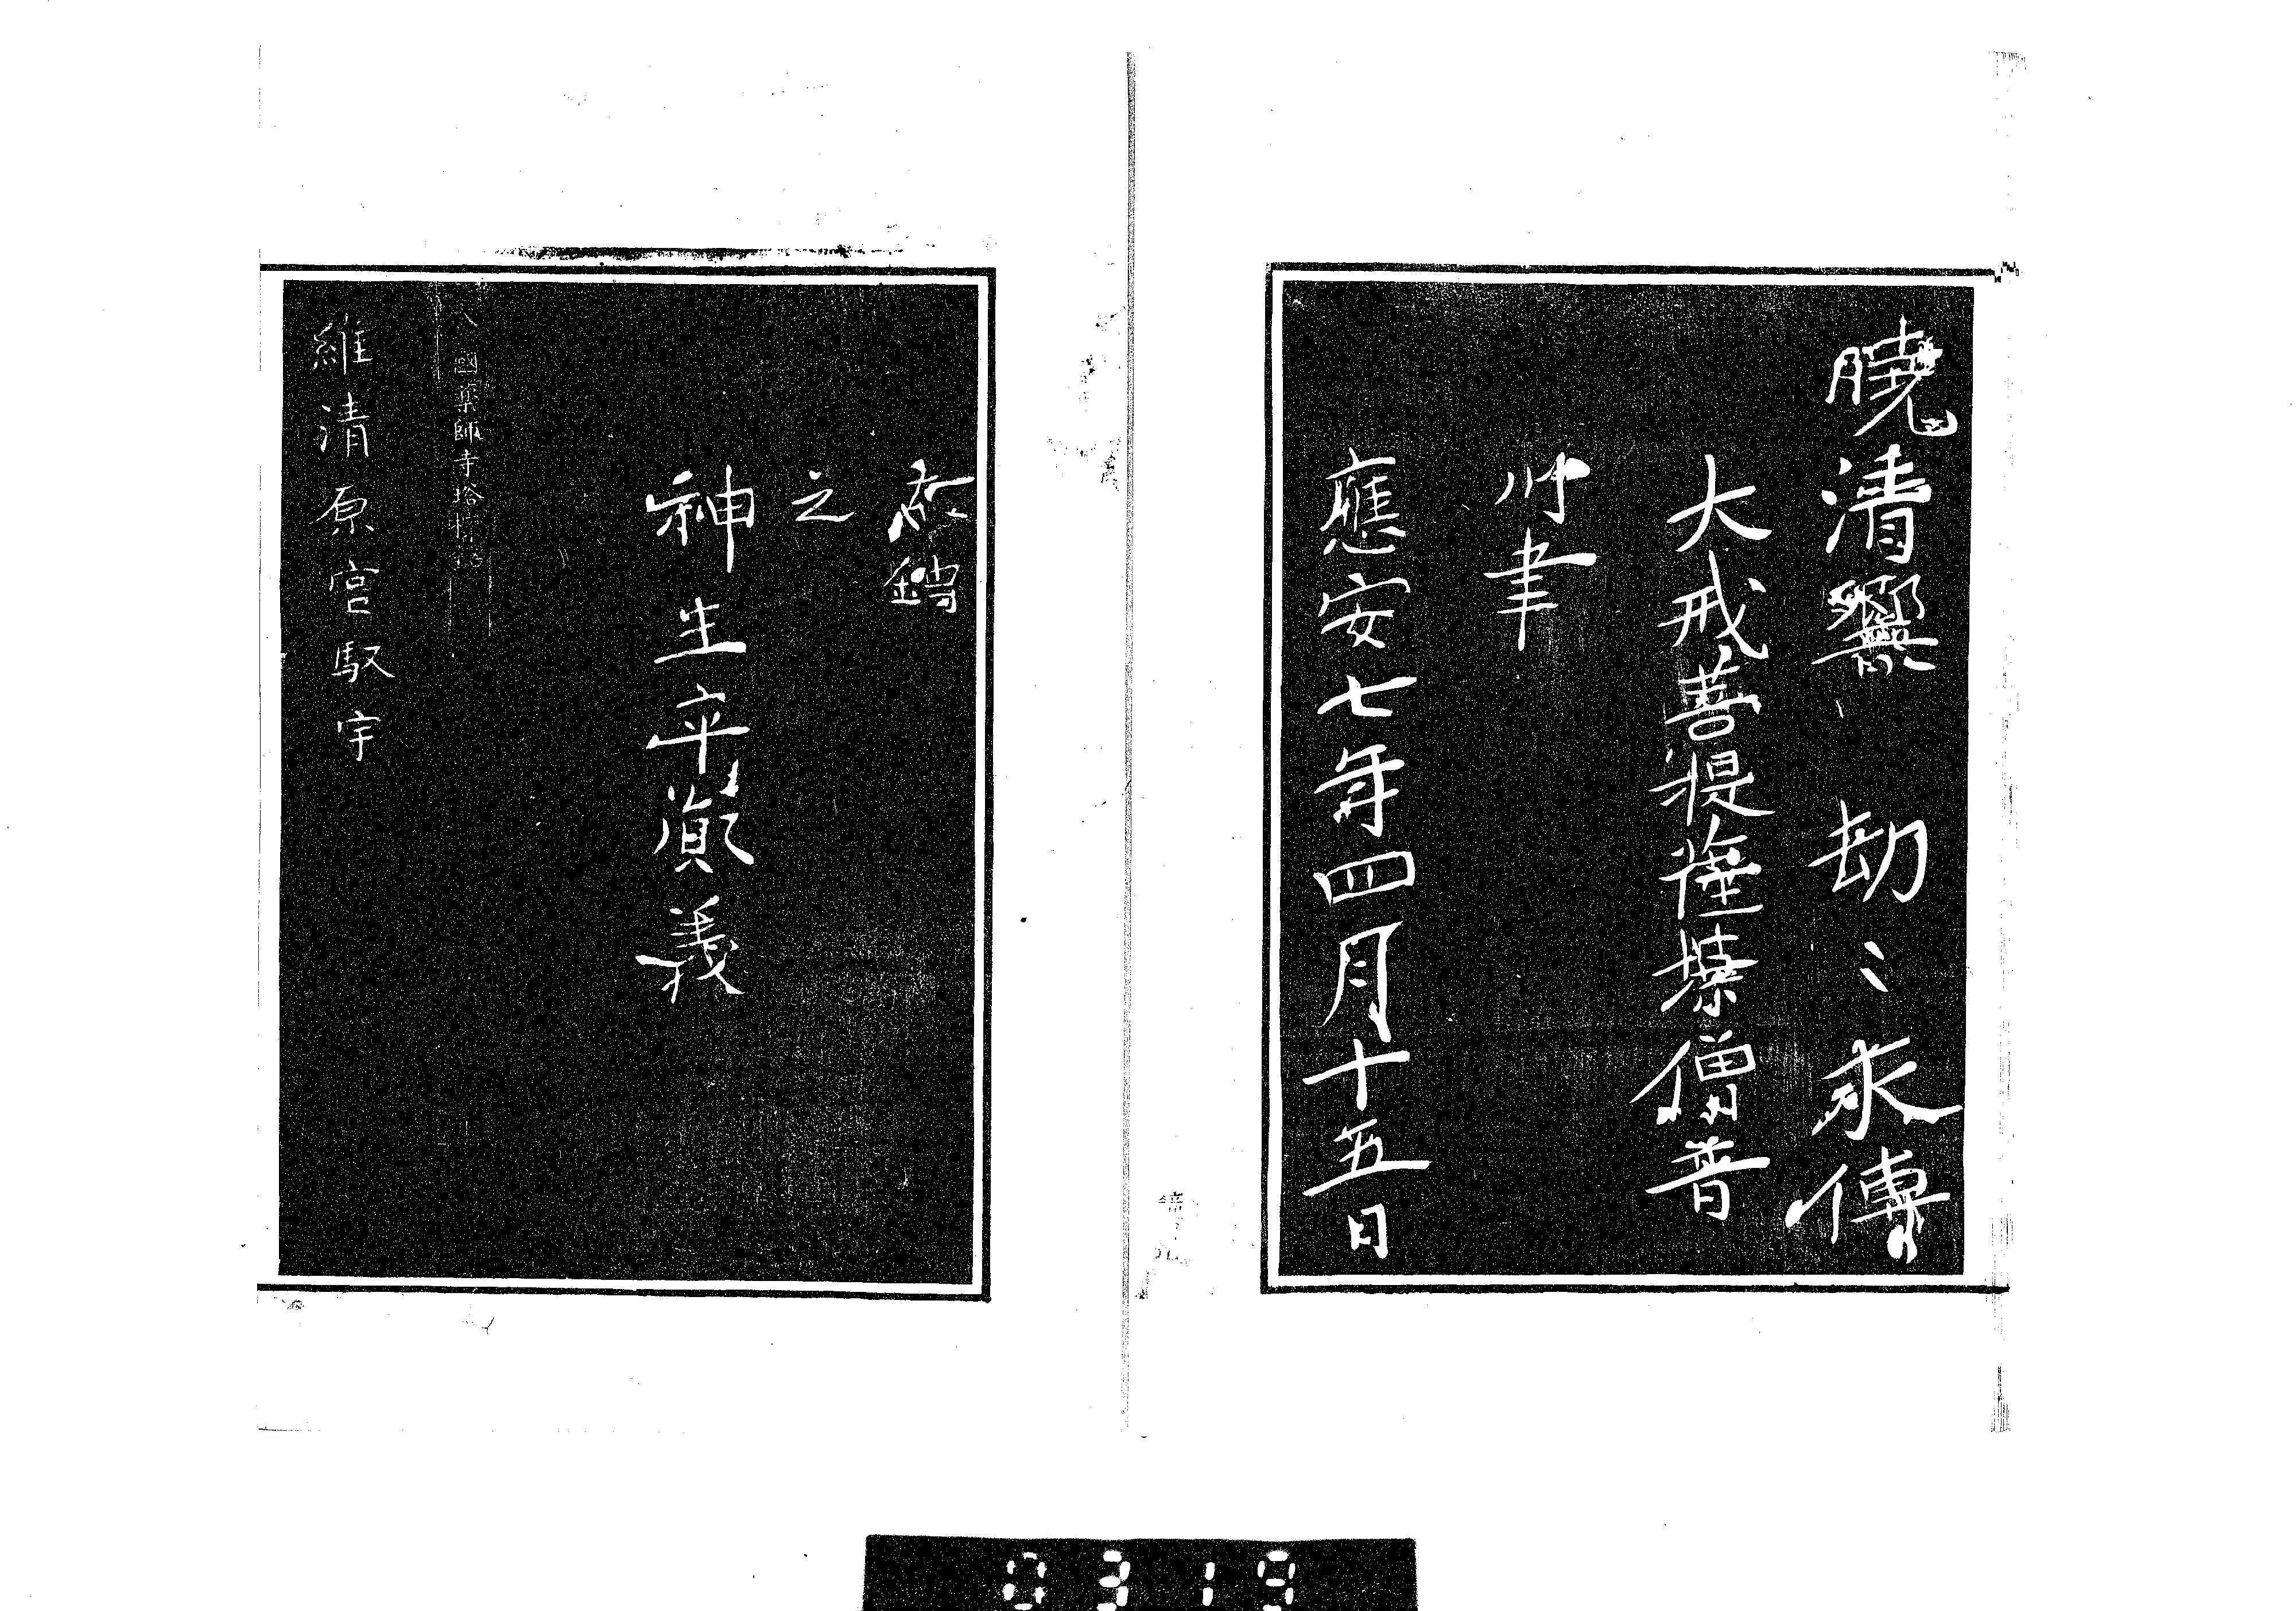 曉清響 劫〻永傳
大戒菩提薩埵僧普
艸聿
應安七年四月十五日
鑄
之
神生平顛義
國藥師寺塔
維清原宮馭宇
0319